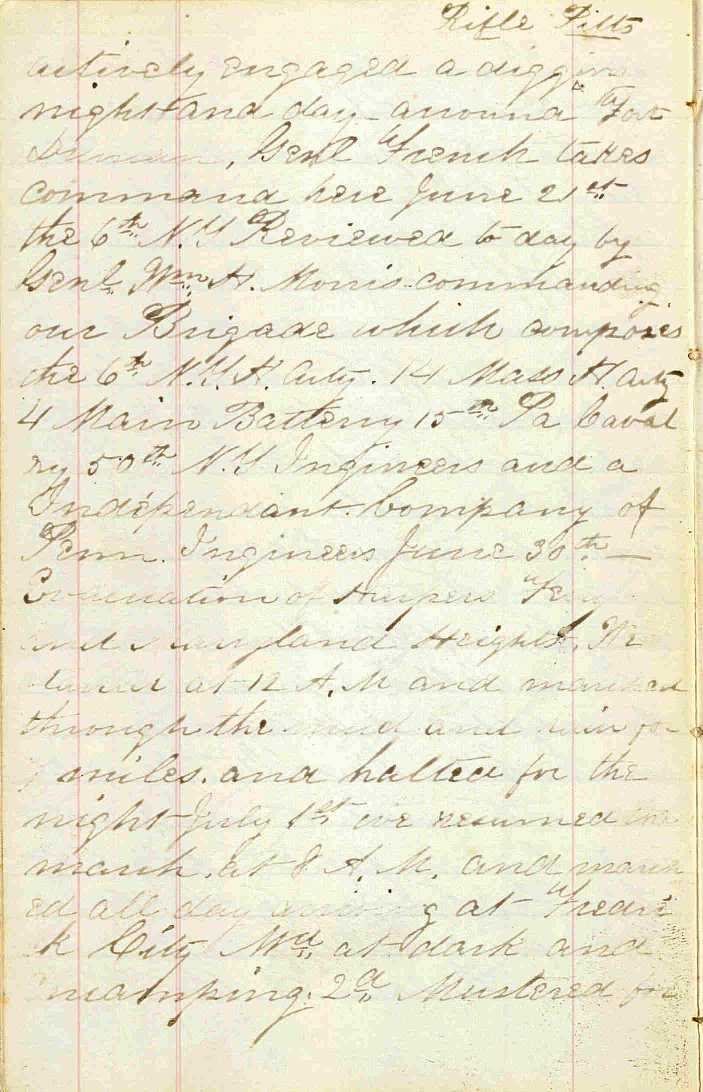 Rifle Pitts
actively engaged a digging
night and day around Fort
Duncan, Genl French takes
command here June 21st
the 6th N.Y Reviewed to day by
Genl Wm H. Morris commanding
our Brigade which composes
the 6th N.Y.H. Arty. 14 Mass H. Arty
4 Main Battery 15th Pa Caval
ry 50th N.Y Ingineers and a
Indépendant Company of
Penn. Ingineers June 30th —
Evacuation of Harpers
and Maryland Heights. We
at 12 A.M and marched
through the mud and rain for
miles. and halted for the
night July 1st we resumed the
march. at 8 A.M. and march
ed all day arriving at Fredri
k City Md at dark and
encamping. 2d Mustered for